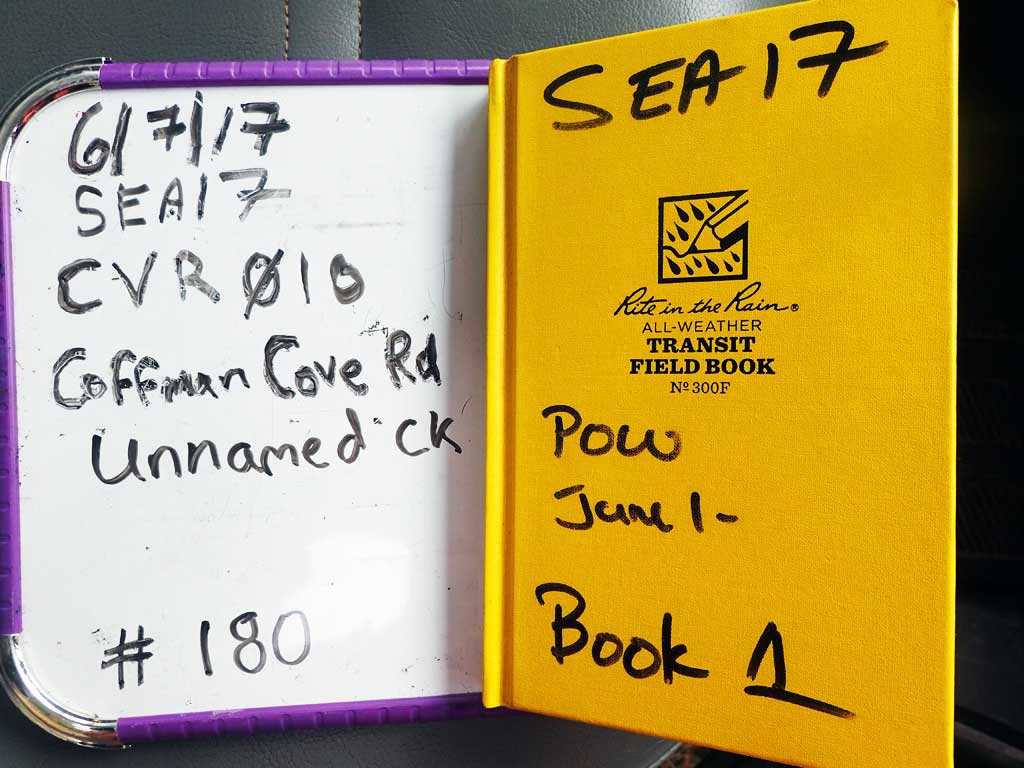 6/7/17
SEA17
CVR Ø10
Coffman Cove Rd
Unnamed Ck
# 180
SEA17
Rite in the Rain®
ALL-WEATHER
TRANSIT
FIELD BOOK
Nº 300F
POW
June 1-
Book 1